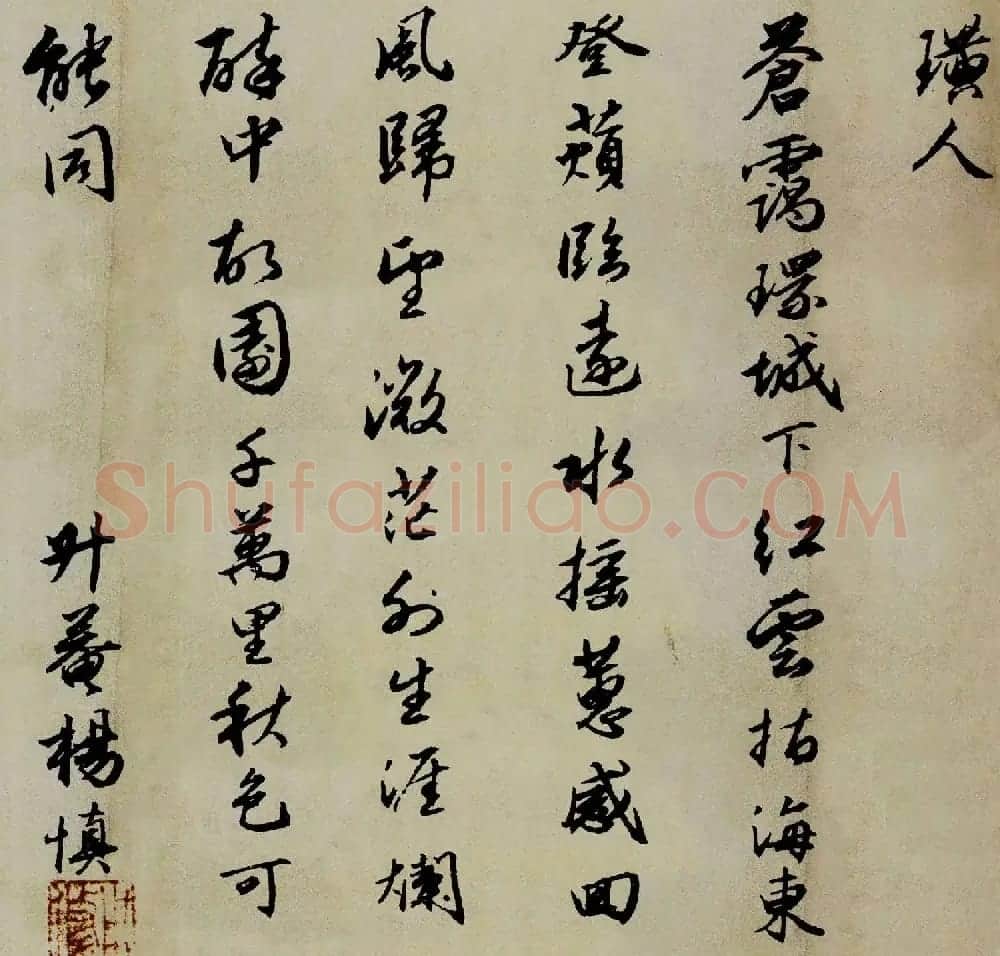 璜人
蒼靄環城下紅雲指海東
登蘋臨遠水搖蕙感回
風歸望微茫外生涯爛
醉中故園千萬里秋色可
能同
升菴楊慎
Shufaziliao.COM